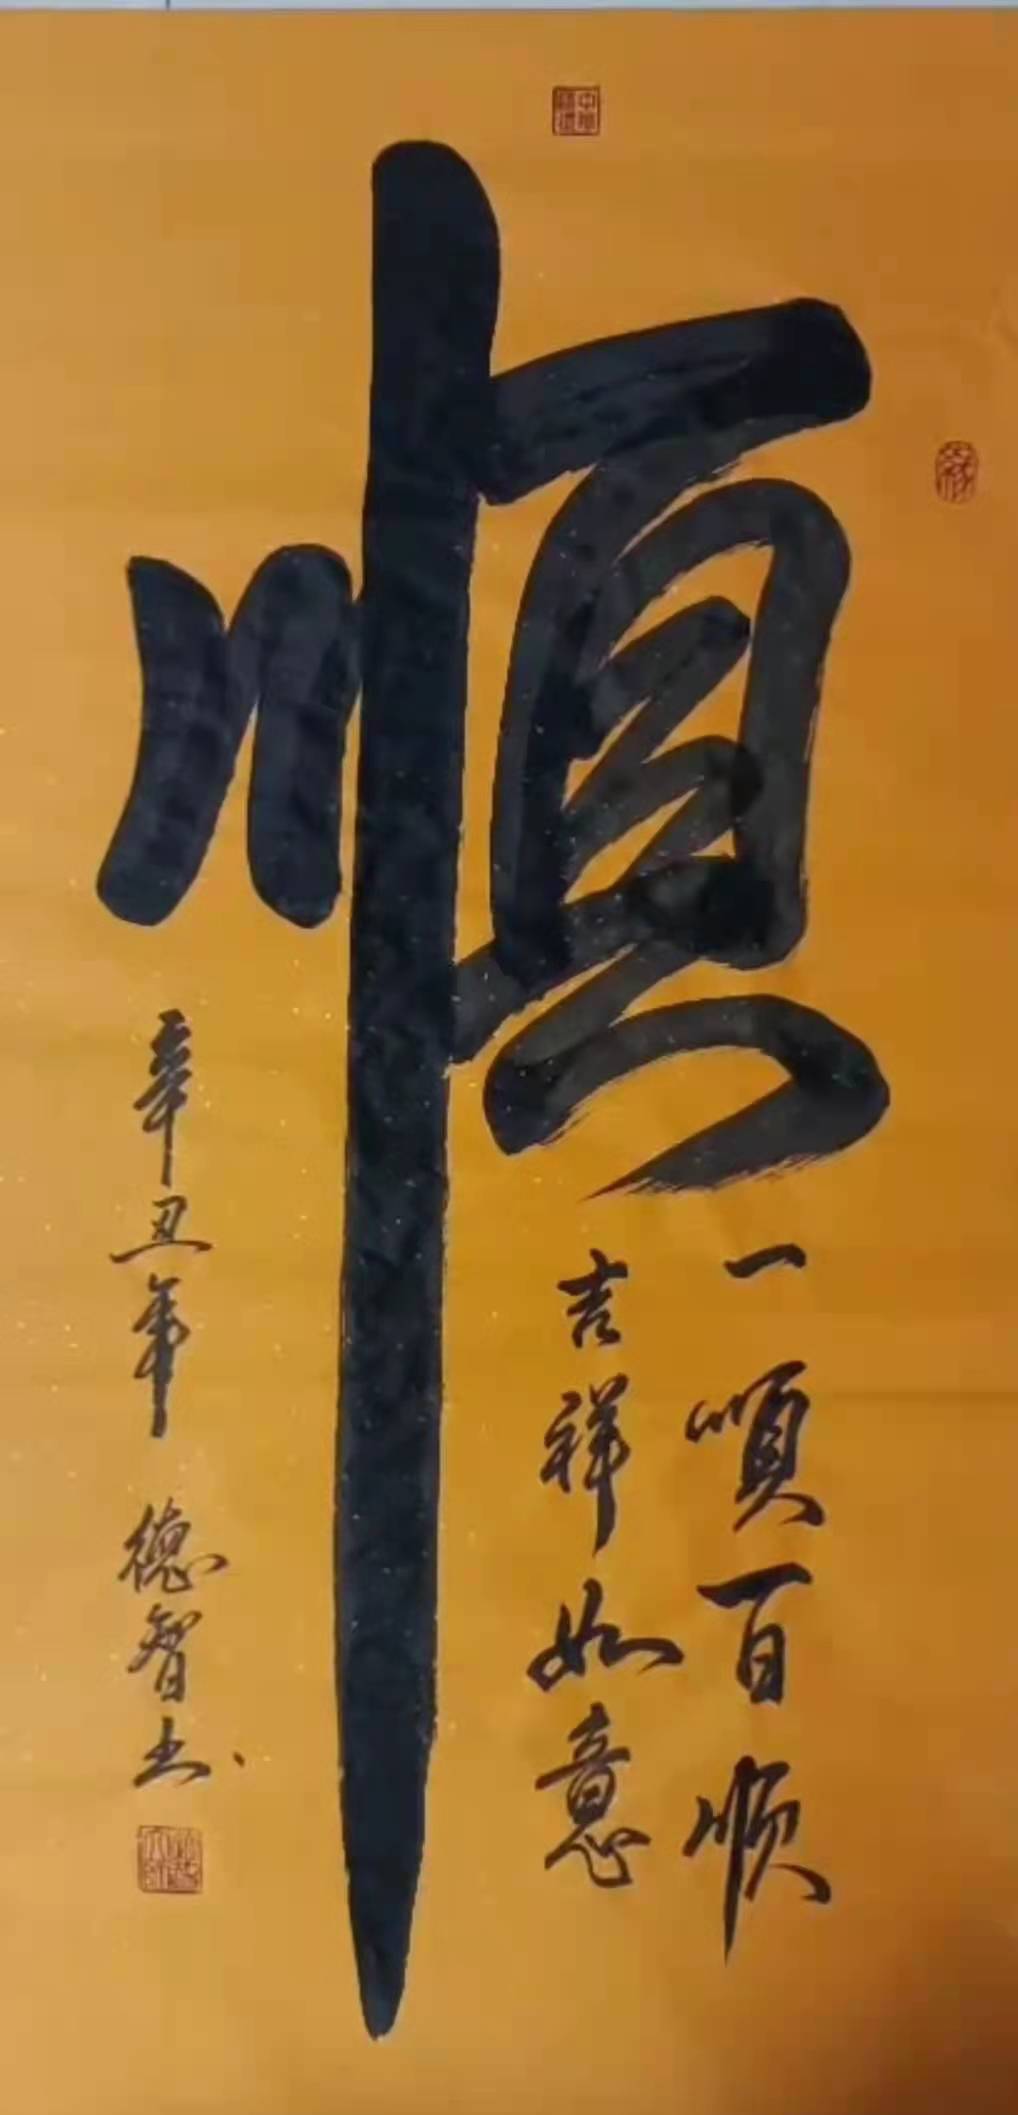 順
一順百顺
吉祥如意
辛丑年 德智书